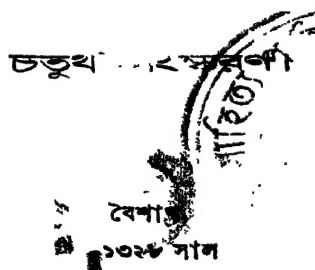 চতুর্থ সংস্করণ
সাহিত্য
বৈশাখ
১৩২৮ সাল